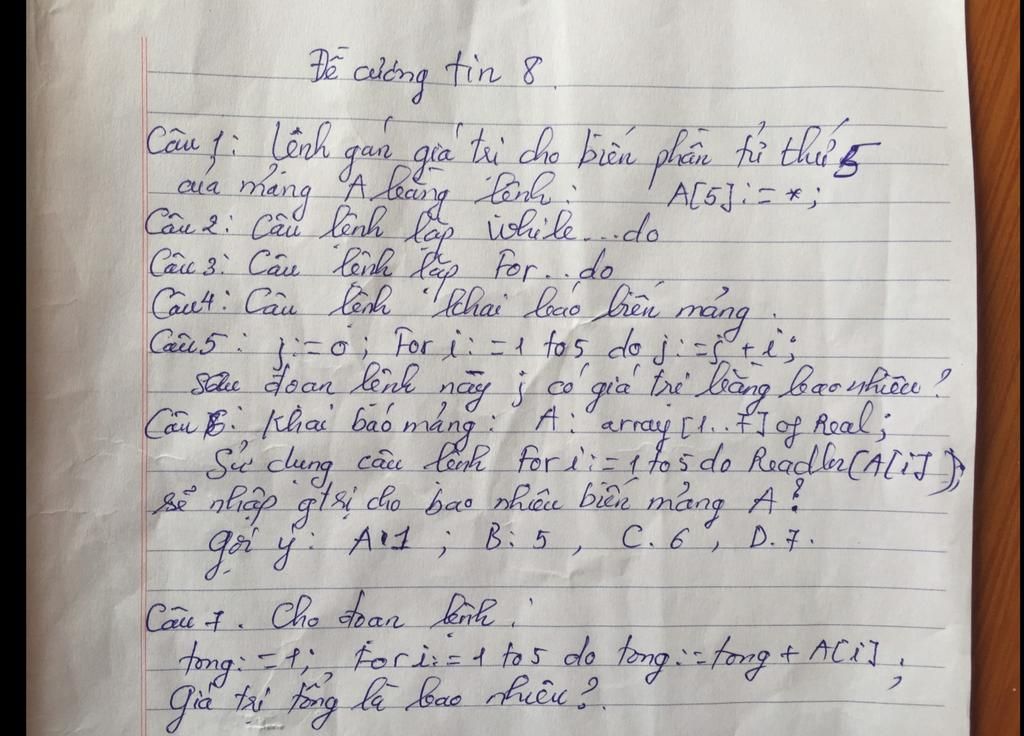 Đề cương tin 8.
Câu 1: Lệnh gán giá trị cho biến phần tử thứ 5
của mảng A bằng lệnh: A[5]:=*;
Câu 2: Câu lệnh lặp While...do
Câu 3: Câu lệnh lặp For...do
Câu 4: Câu lệnh khai báo biến mảng.
Câu 5: j:=0; For i:=1 to 5 do j:=j+i;
sau đoạn lệnh này j có giá trị bằng bao nhiêu?
Câu 6: Khai báo mảng: A: array[1..7] of Real;
Sử dụng câu lệnh For i:=1 to 5 do Readln(A[i]);
sẽ nhập gtrị cho bao nhiêu biến mảng A?
Gợi ý: A.1; B:5, C.6, D.7.
Câu 7. Cho đoạn lệnh:
tong:=1; For i:=1 to 5 do tong:=tong+A[i];
Giá trị tổng là bao nhiêu?